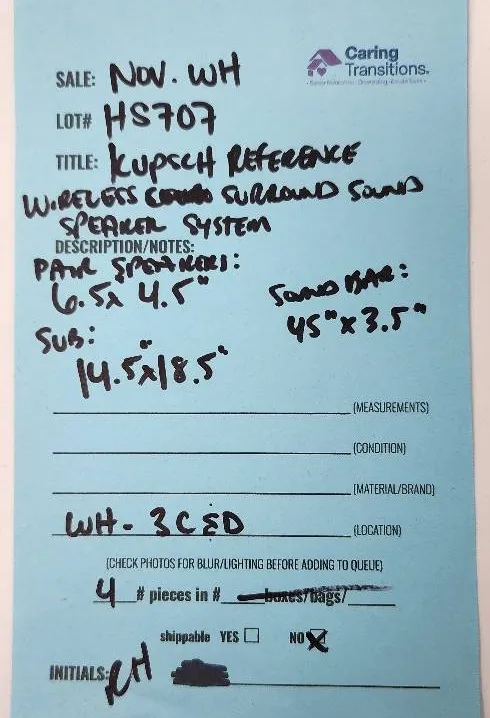 Caring
Transitions.
SALE: NOV. WH
LOT# HS707
TITLE: KLIPSCH REFERENCE
WIRELESS SURROUND SOUND
SPEAKER SYSTEM
DESCRIPTION/NOTES:
PAIR SPEAKERS:
6.5x 4.5"
SOUND BAR:
45" x 3.5"
SUB:
14.5"x18.5"
(MEASUREMENTS)
(CONDITION)
(MATERIAL/BRAND)
WH- 3C&D (LOCATION)
(CHECK PHOTOS FOR BLUR/LIGHTING BEFORE ADDING TO QUEUE)
4 # pieces in # boxes/bags/
shippable YES NO X
INITIALS: RH